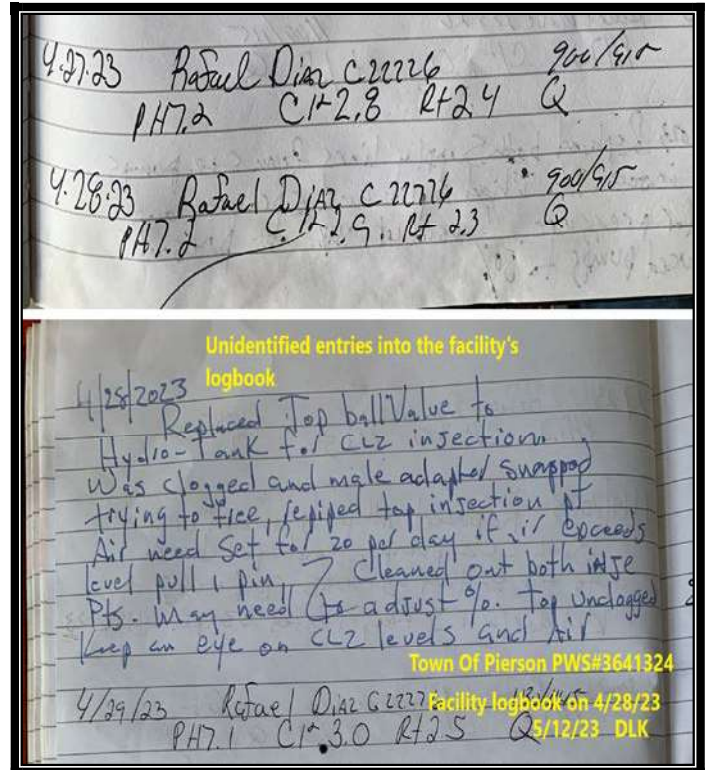 4.27.23 Rafael Diaz C22226 900/915
PH7.2 Cl2 2.8 Rt 2.4 Q
4.28.23 Rafael Diaz C 22226 900/915
PH7.2 Cl2 2.9 Rt 2.3 Q
Unidentified entries into the facility's
logbook
4/28/2023
Replaced Top ball Valve to
Hydro-Tank for CL2 injection.
Was clogged and male adapter snapped
trying to free, repiped top injection pt
Air need set for 20 per day if it exceeds
level pull 1 pin, Cleaned out both inje
Pts. May need to adjust %. Top unclogged
Keep an eye on CL2 levels and Air
Town Of Pierson PWS#3641324
4/29/23 Rafael Diaz Facility logbook on 4/28/23
PH7.1 Cl2 3.0 Rt 2.5 Q 5/12/23 DLK